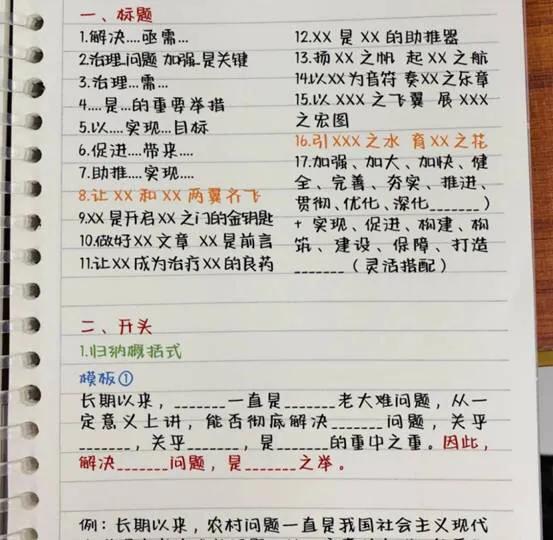 一、标题
1.解决....亟需...
2.治理..问题 加强..是关键
3.治理...需...
4....是...的重要举措
5.以....实现...目标
6.促进....带来....
7.助推....实现....
8.让XX和XX两翼齐飞
9.XX是开启XX之门的金钥匙
10.做好XX文章 XX是前言
11.让XX成为治疗XX的良药
12.XX是XX的助推器
13.扬XX之帆 起XX之航
14.以XX为音符 奏XX之乐章
15.以XXX之飞翼 展XXX
之宏图
16.引XXX之水 育XX之花
17.加强、加大、加快、健
全、完善、夯实、推进、
贯彻、优化、深化_______)
+实现、促进、构建、构
筑、建设、保障、打造
_______(灵活搭配)
二、开头
1.归纳概括式
模板①
长期以来，_______一直是_______老大难问题，从一
定意义上讲，能否彻底解决_______问题，关乎
_______，关乎_______，是_______的重中之重。因此，
解决_______问题，是_______之举。
例：长期以来，农村问题一直是我国社会主义现代